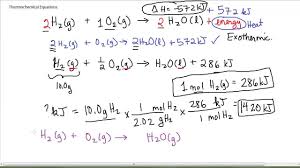 Thermochemical Equations
ΔH = -572 kJ
2H₂(g) + 1O₂(g) → 2H₂O(l) + energy Heat
2H₂(g) + O₂(g) → 2H₂O(l) + 572 kJ Exothermic
H₂(g) + ½O₂(g) → H₂O(l) + 286 kJ
10.0g
1 mol H₂(g) = 286 kJ
? kJ = 10.0g H₂ × 1 mol H₂ / 2.02 g H₂ × 286 kJ / 1 mol H₂ = 1420 kJ
H₂(g) + O₂(g) → H₂O(g)